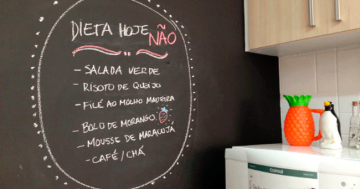 DIETA HOJE NÃO
- SALADA VERDE
- RISOTO DE QUEIJO
- FILÉ AO MOLHO MADEIRA
- BOLO DE MORANGO
- MOUSSE DE MARACUJÁ
- CAFÉ / CHÁ
Consul